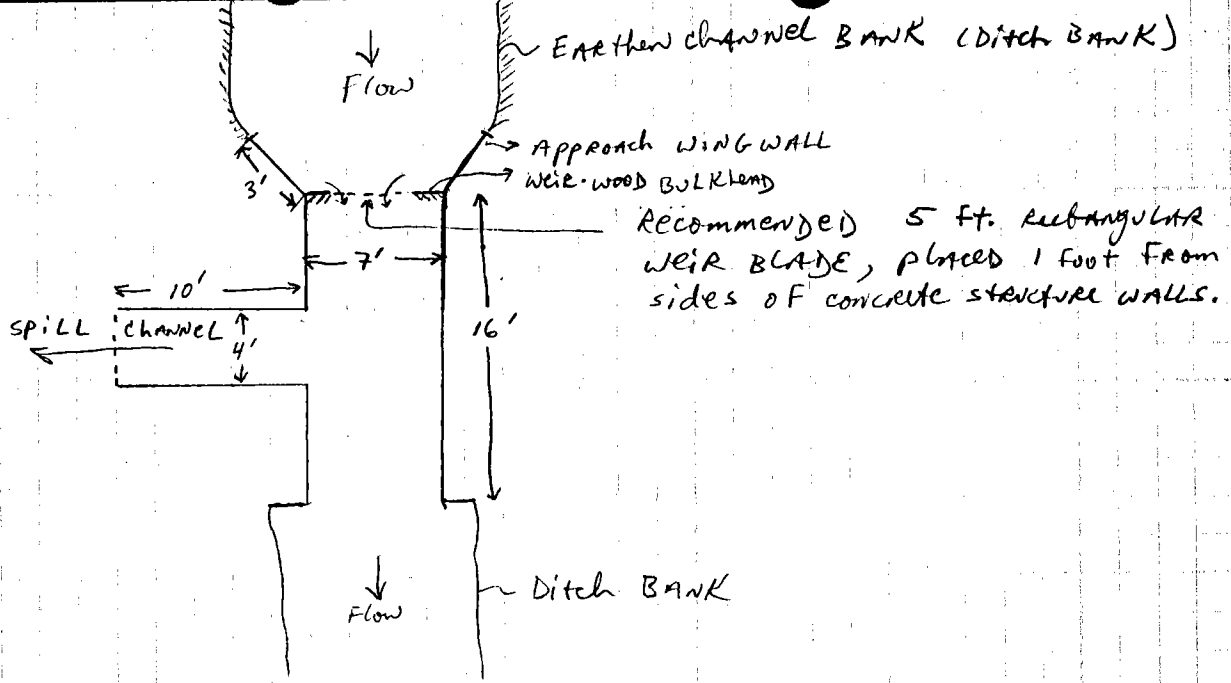 EARthen chANNel BANK (Ditch BANK)
Flow
APPROACh WiNGWALL
weiR-wooD BULKheAD
3'
Recommended 5 ft. RectangulAR
weiR BLADE, plAced 1 foot from
sides of concrete structure wALLs.
7'
10'
SPiLL ChANNeL
4'
16'
Ditch BANK
Flow